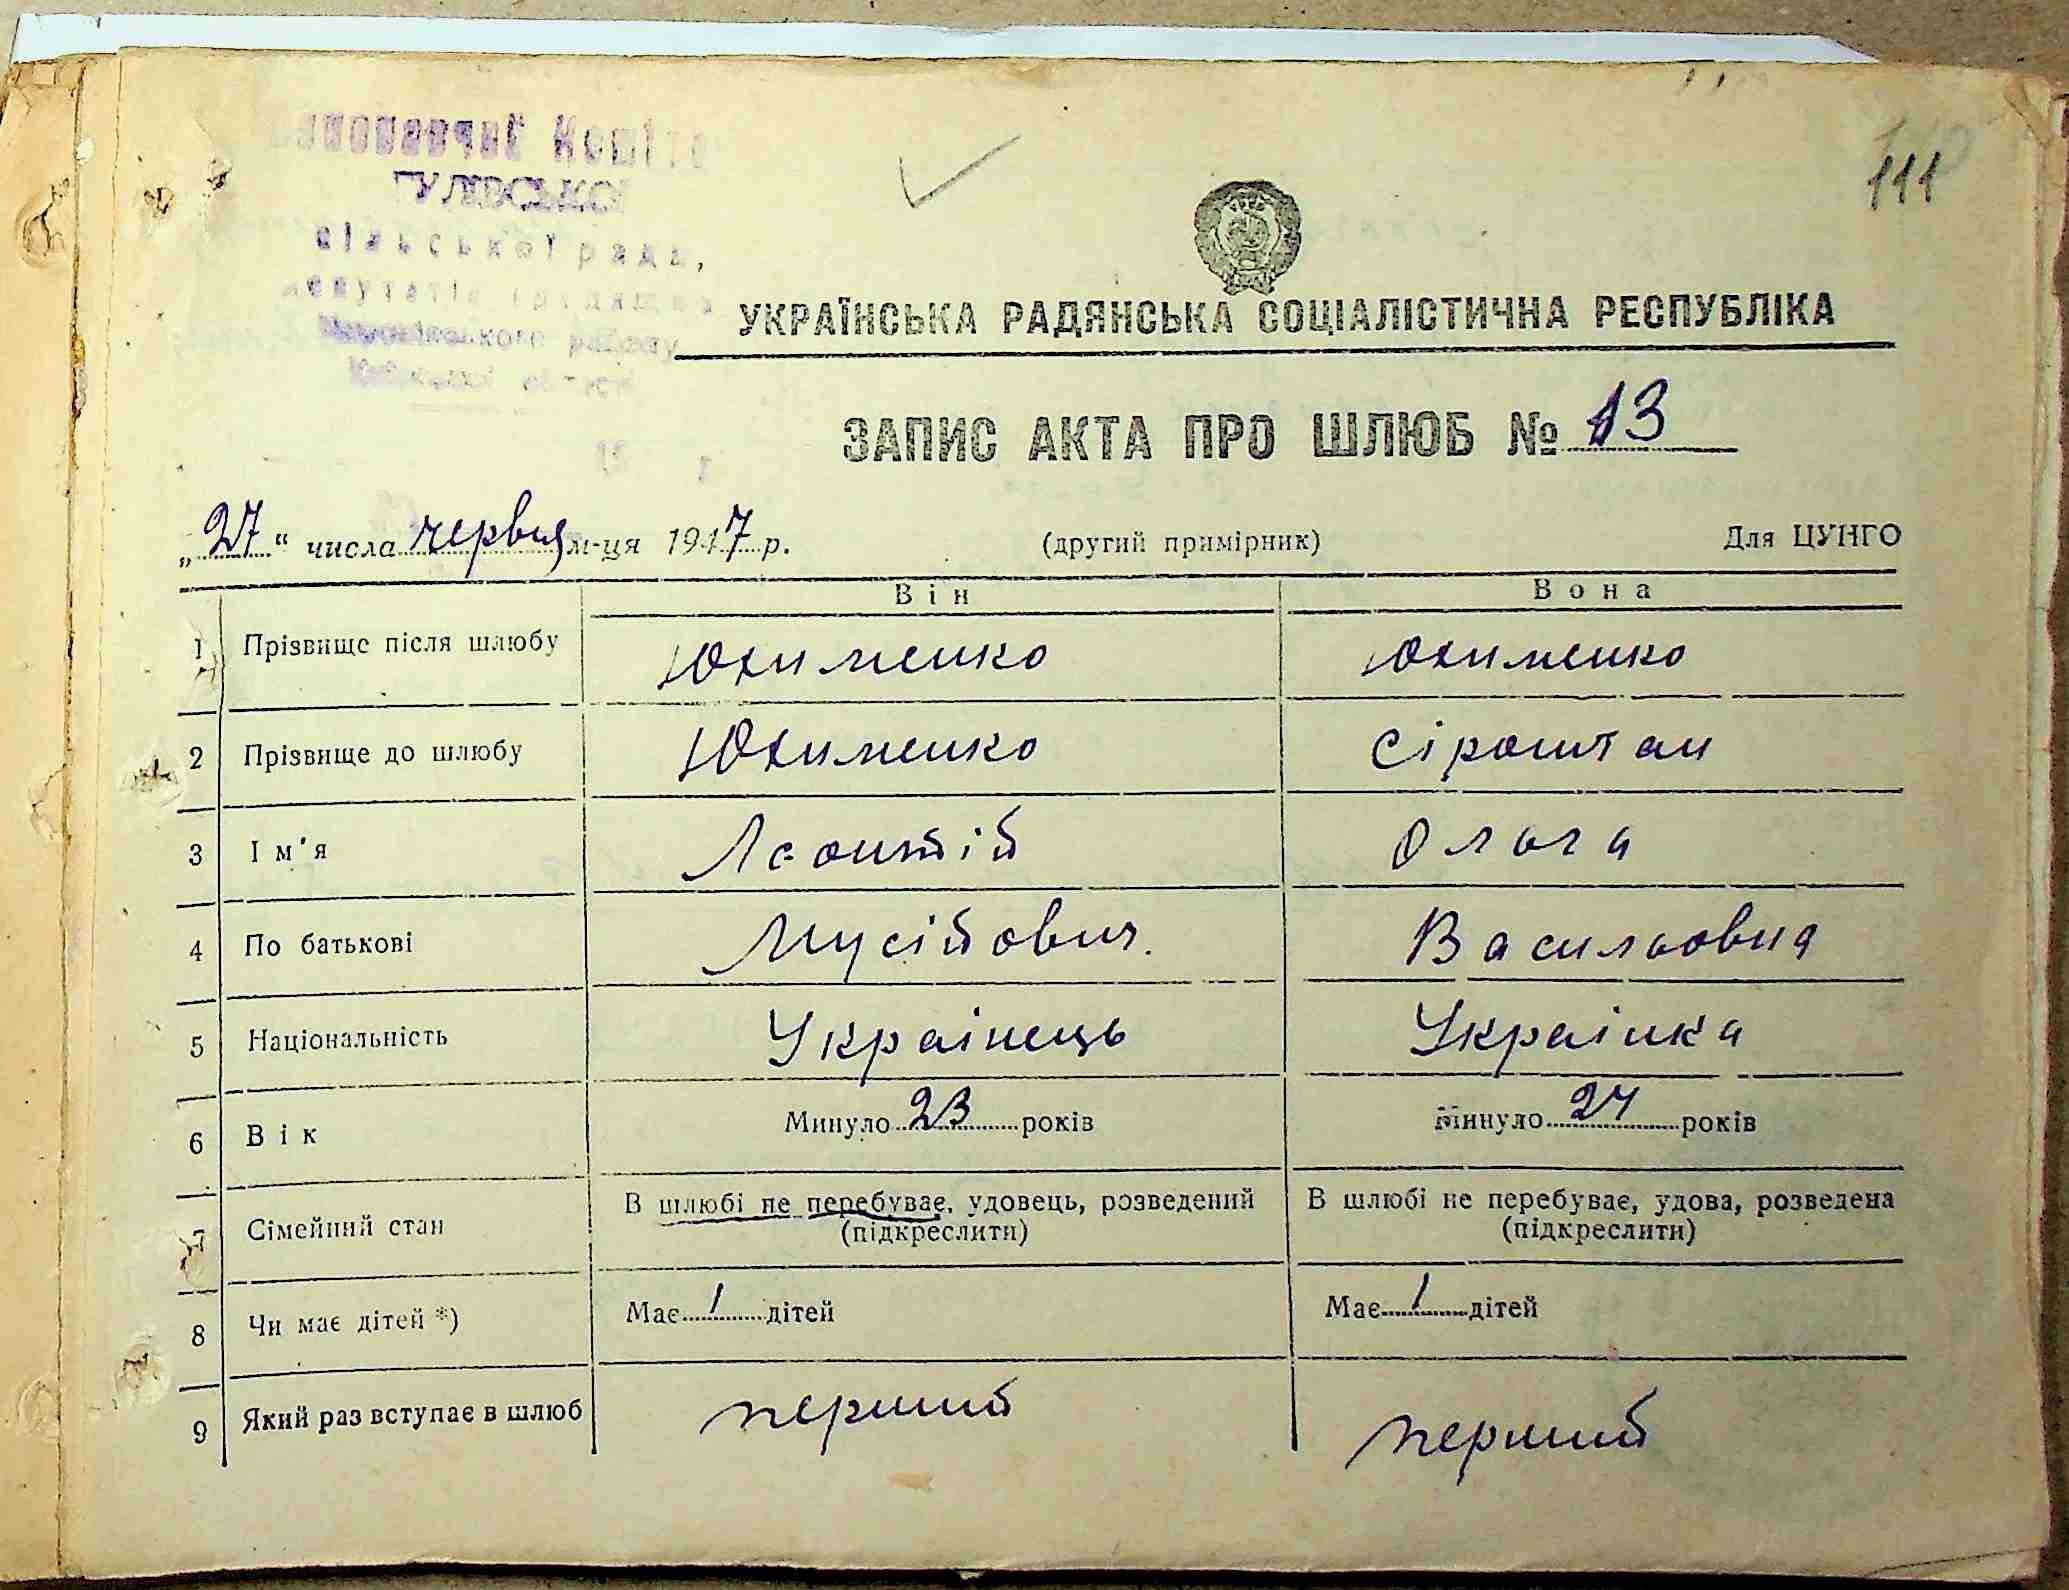 Виконавчий Коміте
ГУЛІВСЬКО
сільської ради,
депутатів трудящих
району
111
УКРАЇНСЬКА РАДЯНСЬКА СОЦІАЛІСТИЧНА РЕСПУБЛІКА
ЗАПИС АКТА ПРО ШЛЮБ № 13
„27“ числа червня м-ця 1947 р. (другий примірник) Для ЦУНГО
Він Вона
1 Прізвище після шлюбу Юхименко Юхименко
2 Прізвище до шлюбу Юхименко Сіроштан
3 Ім'я Леонтій Ольга
4 По батькові Мусійович. Васильовна
5 Національність Українець Українка
6 Вік Минуло 23 років Минуло 24 років
7 Сімейний стан В шлюбі не перебуває, удовець, розведений В шлюбі не перебуває, удова, розведена
(підкреслити) (підкреслити)
8 Чи має дітей *) Має 1 дітей Має 1 дітей
9 Який раз вступає в шлюб перший перший